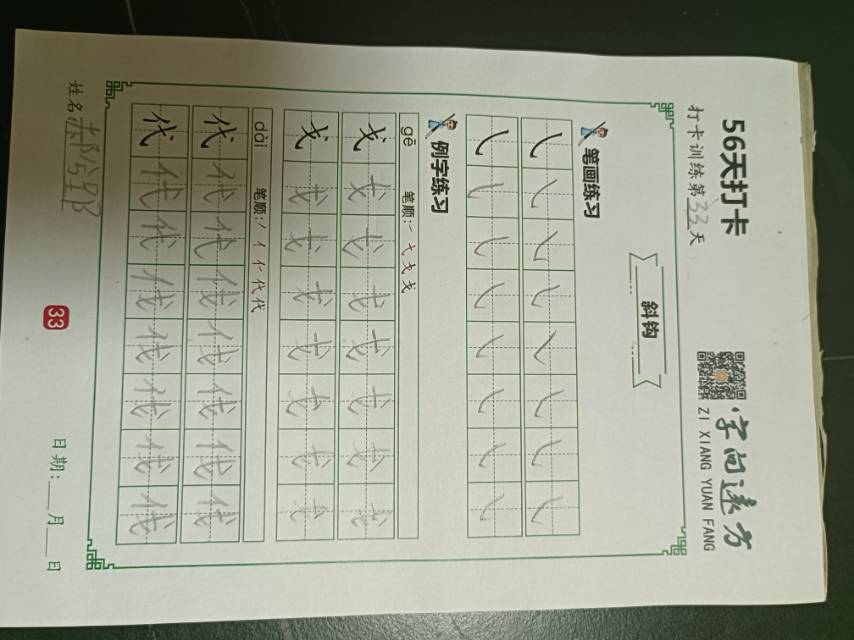 56天打卡 字向远方
打卡训练第33天 ZI XIANG YUAN FANG
斜钩
笔画练习
例字练习
gē 笔顺:
戈 戈 戈 戈 戈 戈 戈 戈
戈 戈 戈 戈 戈 戈 戈 戈
dài 笔顺:丿 亻 仁 代 代
代 代 代 代 代 代 代 代
代 代 代 代 代 代 代 代
姓名: 33 日期:___月___日